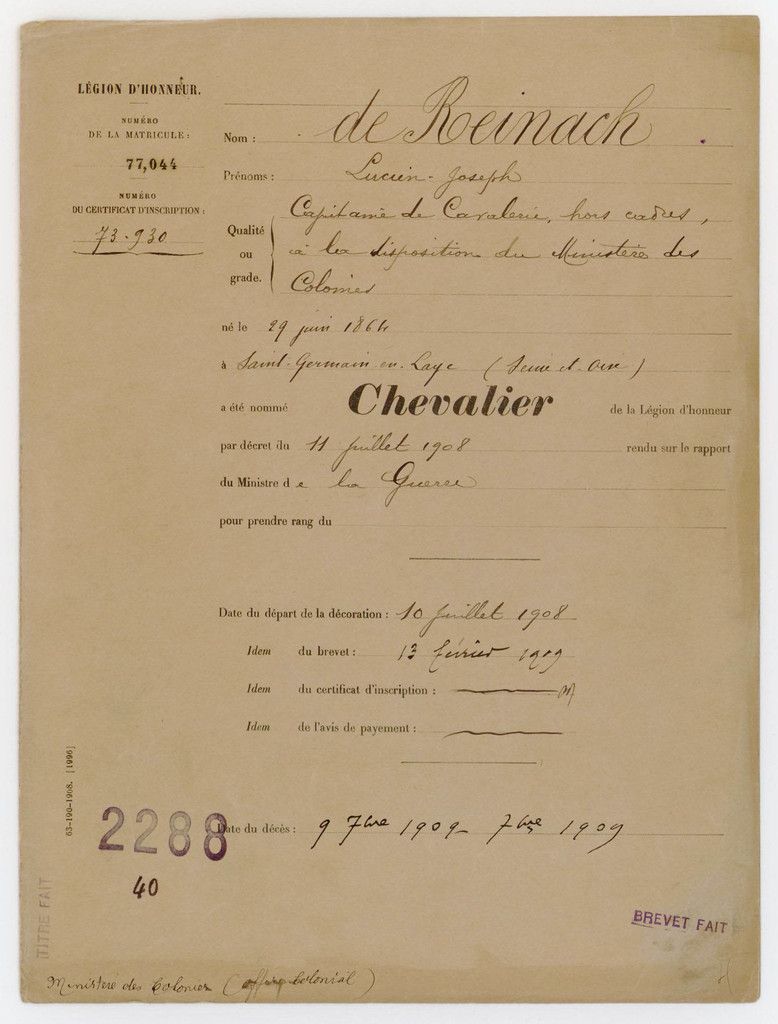 LÉGION D'HONNEUR.
NUMÉRO
DE LA MATRICULE :
77,044
NUMÉRO
DU CERTIFICAT D'INSCRIPTION :
73-930
Nom : de Reinach
Prénoms : Lucien-Joseph
Qualité ou grade. Capitaine de Cavalerie, hors cadres,
à la disposition du Ministère des
Colonies
né le 29 juin 1864
à Saint-Germain-en-Laye (Seine-et-Oise)
a été nommé Chevalier de la Légion d'honneur
par décret du 11 juillet 1908 rendu sur le rapport
du Ministre de la Guerre
pour prendre rang du
Date du départ de la décoration : 10 juillet 1908
Idem du brevet : 13 février 1909
Idem du certificat d'inscription :
Idem de l'avis de payement :
63-190-1908. [1996]
2288
Date du décès : 9 7bre 1909 7bre 1909
40
TITRE FAIT
BREVET FAIT
Ministère des Colonies ( Colonial)